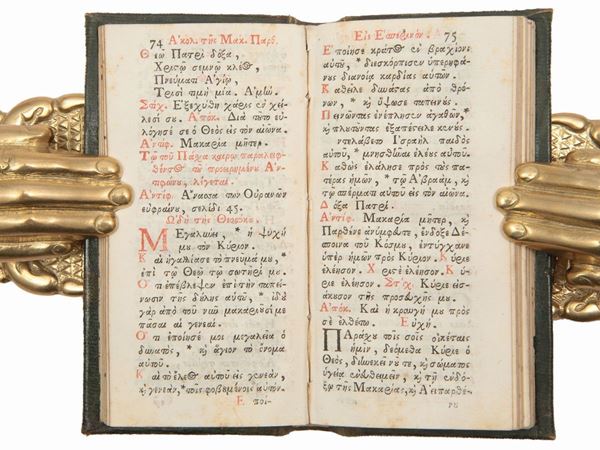 74 Ἀκολ. τῆς Μακ. Παρθ.
Θεῷ Πατρὶ δόξα,
Χριστῷ σεμνῷ κλέος,
Πνεύματι Ἁγίῳ,
Τρισὶ τιμὴ μία. Ἀμήν.
Στίχ. Ἐξεχύθη χάρις ἐν χεί-
λεσί σου. Ἀπόκ. Διὰ τοῦτο εὐ-
λόγησέ σε ὁ Θεὸς εἰς τὸν αἰῶνα.
Ἀντίφ. Μακαρία μῆτερ.
Τῷ τοῦ Πάσχα καιρῷ παραλειφ-
θέντος τοῦ προειρημένου Ἀν-
τιφώνου, λέγεται.
Ἀντίφ. Ἄνασσα τῶν Οὐρανῶν
εὐφραίνου, σελίδι 45.
Ὠδὴ τῆς Θεοτόκου.
Μεγαλύνει, * ἡ ψυχή
μου τὸν Κύριον.
Καὶ ἠγαλλίασε τὸ πνεῦμά μου, *
ἐπὶ τῷ Θεῷ τῷ σωτῆρί μου.
Ὅτι ἐπέβλεψεν ἐπὶ τὴν ταπεί-
νωσιν τῆς δούλης αὐτοῦ, * ἰδοὺ
γὰρ ἀπὸ τοῦ νῦν μακαριοῦσί με
πᾶσαι αἱ γενεαί.
Ὅτι ἐποίησέ μοι μεγαλεῖα ὁ
δυνατός, * καὶ ἅγιον τὸ ὄνομα
αὐτοῦ.
Καὶ τὸ ἔλεος αὐτοῦ εἰς γενεὰν,
καὶ γενεὰν, * τοῖς φοβουμένοις αὐτόν.
Ἐποί-
Εἰς Ἑσπερινόν. 75
Ἐποίησε κράτος ἐν βραχίονι
αὐτοῦ, * διεσκόρπισεν ὑπερηφά-
νους διανοίᾳ καρδίας αὐτῶν.
Καθεῖλε δυνάστας ἀπὸ θρό-
νων, * καὶ ὕψωσε ταπεινούς.
Πεινῶντας ἐνέπλησεν ἀγαθῶν, *
καὶ πλουτοῦντας ἐξαπέστειλε κενούς.
ντελάβετο Ἰσραὴλ παιδὸς
αὐτοῦ, * μνησθῆναι ἐλέους αὐτοῦ.
Καθὼς ἐλάλησε πρὸς τοὺς πα-
τέρας ἡμῶν, * τῷ Ἀβραὰμ, καὶ
τῷ σπέρματι αὐτοῦ εἰς τὸν αἰῶνα.
Δόξα Πατρί.
Ἀντίφ. Μακαρία μῆτερ, καὶ
Παρθένε ἀνύμφευτε, ἔνδοξε Δέ-
σποινα τοῦ Κόσμου, ἐντύγχανε
ὑπὲρ ἡμῶν πρὸς Κύριον. Κύριε
ἐλέησον. Χριστὲ ἐλέησον. Κύ-
ριε ἐλέησον. Στίχ. Κύριε εἰσ-
άκουσον τῆς προσευχῆς μου.
Ἀπόκ. Καὶ ἡ κραυγή μου πρὸς
σὲ ἐλθέτω. Εὐχή.
Παράσχου τοῖς σοῖς οἰκέταις
ἡμῖν, δεόμεθα Κύριε ὁ
Θεὸς, διηνεκεῖ νοῦ τε, καὶ σώματος
ὑγείᾳ εὐσθενεῖν, καὶ τῇ ἐνδό-
ξῳ τῆς Μακαρίας, καὶ Ἀειπαρθέ-